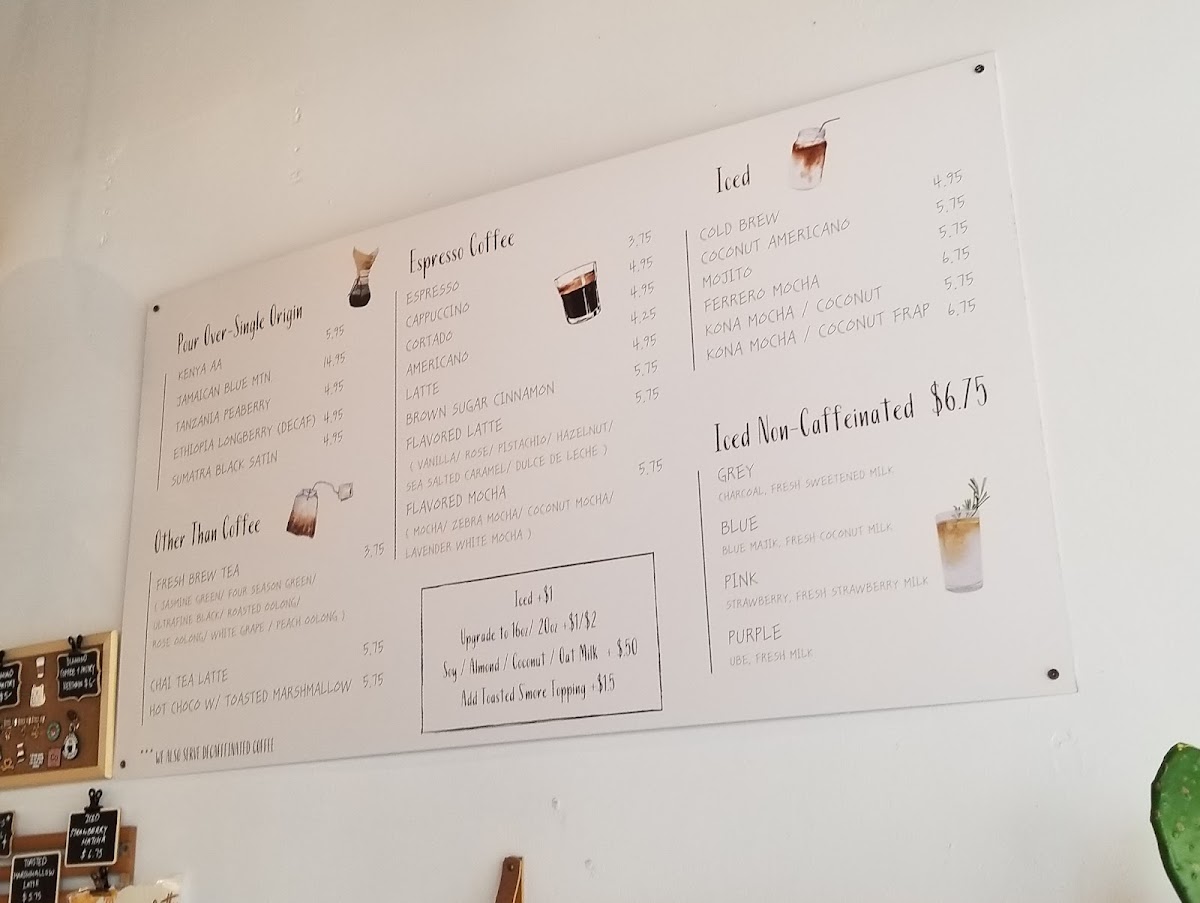 Pour Over-Single Origin
KENYA AA 5.95
JAMAICAN BLUE MTN 14.95
TANZANIA PEABERRY 4.95
ETHIOPIA LONGBERRY (DECAF) 4.95
SUMATRA BLACK SATIN 4.95
Other Than Coffee
FRESH BREW TEA 3.75
( JASMINE GREEN/ FOUR SEASON GREEN/
ULTRAFINE BLACK/ ROASTED OOLONG/
ROSE OOLONG/ WHITE GRAPE / PEACH OOLONG )
CHAI TEA LATTE 5.75
HOT CHOCO W/ TOASTED MARSHMALLOW 5.75
*** WE ALSO SERVE DECAFFEINATED COFFEE
Espresso Coffee
ESPRESSO 3.75
CAPPUCCINO 4.95
CORTADO 4.95
AMERICANO 4.25
LATTE 4.95
BROWN SUGAR CINNAMON 5.75
FLAVORED LATTE 5.75
( VANILLA/ ROSE/ PISTACHIO/ HAZELNUT/
SEA SALTED CARAMEL/ DULCE DE LECHE )
FLAVORED MOCHA 5.75
( MOCHA/ ZEBRA MOCHA/ COCONUT MOCHA/
LAVENDER WHITE MOCHA )
Iced +$1
Upgrade to 16oz/ 20oz +$1/$2
Soy / Almond / Coconut / Oat Milk + $.50
Add Toasted Smore Topping +$1.5
Iced
COLD BREW 4.95
COCONUT AMERICANO 5.75
MOJITO 5.75
FERRERO MOCHA 6.75
KONA MOCHA / COCONUT 5.75
KONA MOCHA / COCONUT FRAP 6.75
Iced Non-Caffeinated $6.75
GREY
CHARCOAL, FRESH SWEETENED MILK
BLUE
BLUE MAJIK, FRESH COCONUT MILK
PINK
STRAWBERRY, FRESH STRAWBERRY MILK
PURPLE
UBE, FRESH MILK
ICED
STRAWBERRY
MATCHA
$6.75
TOASTED
MARSHMALLOW
LATTE
$5.75